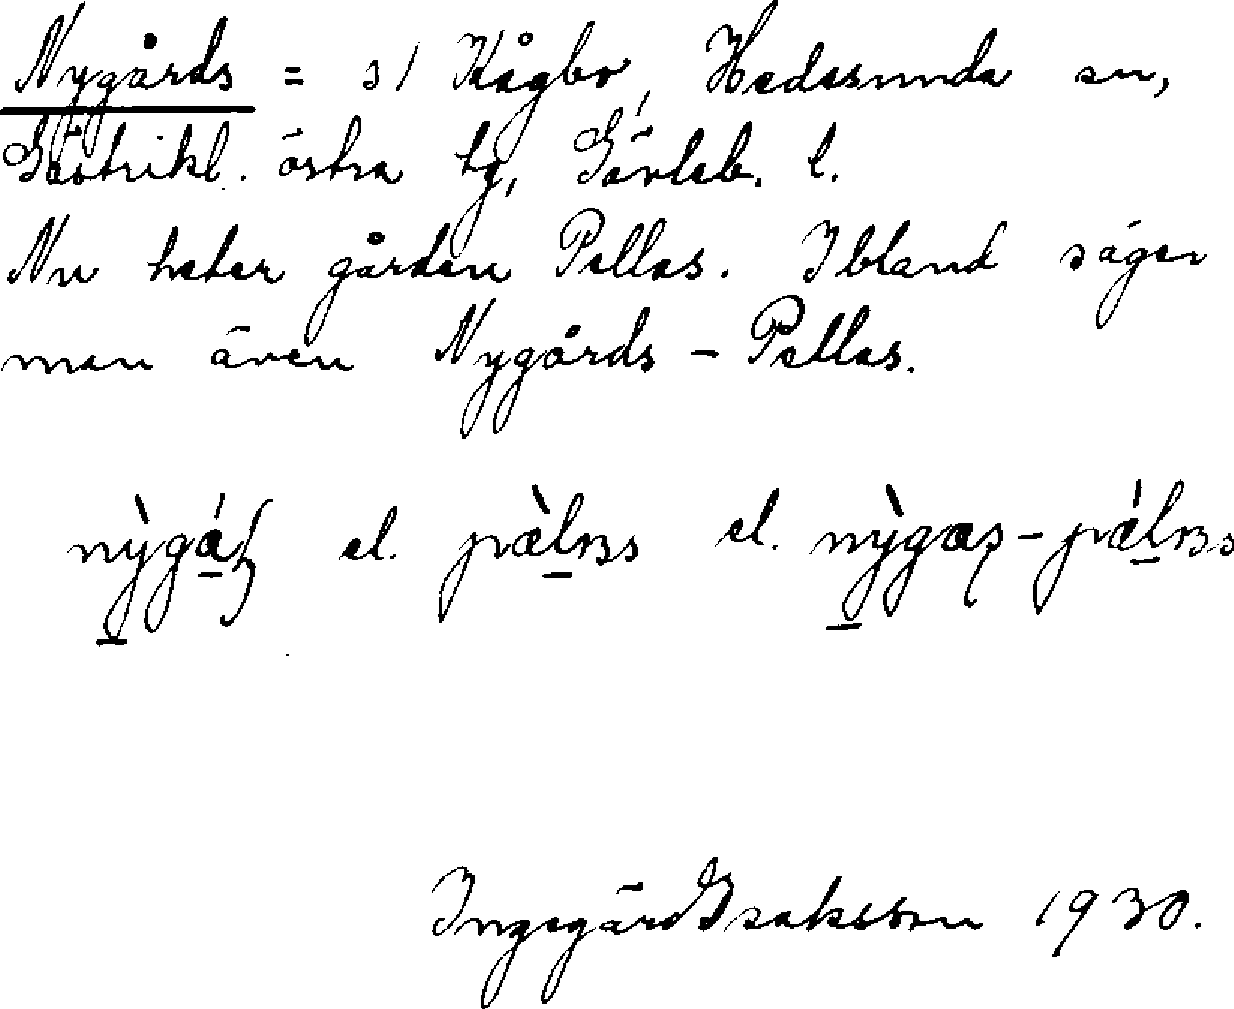 Nygårds = s/ Kågbo, Hedesunda sn,
Gästrikl. östra tg, Gävleb. l.
Nu heter gården Pellas. Ibland säger
man även Nygårds - Pellas.
el. el.
Ingegärd Isaksson 1930.